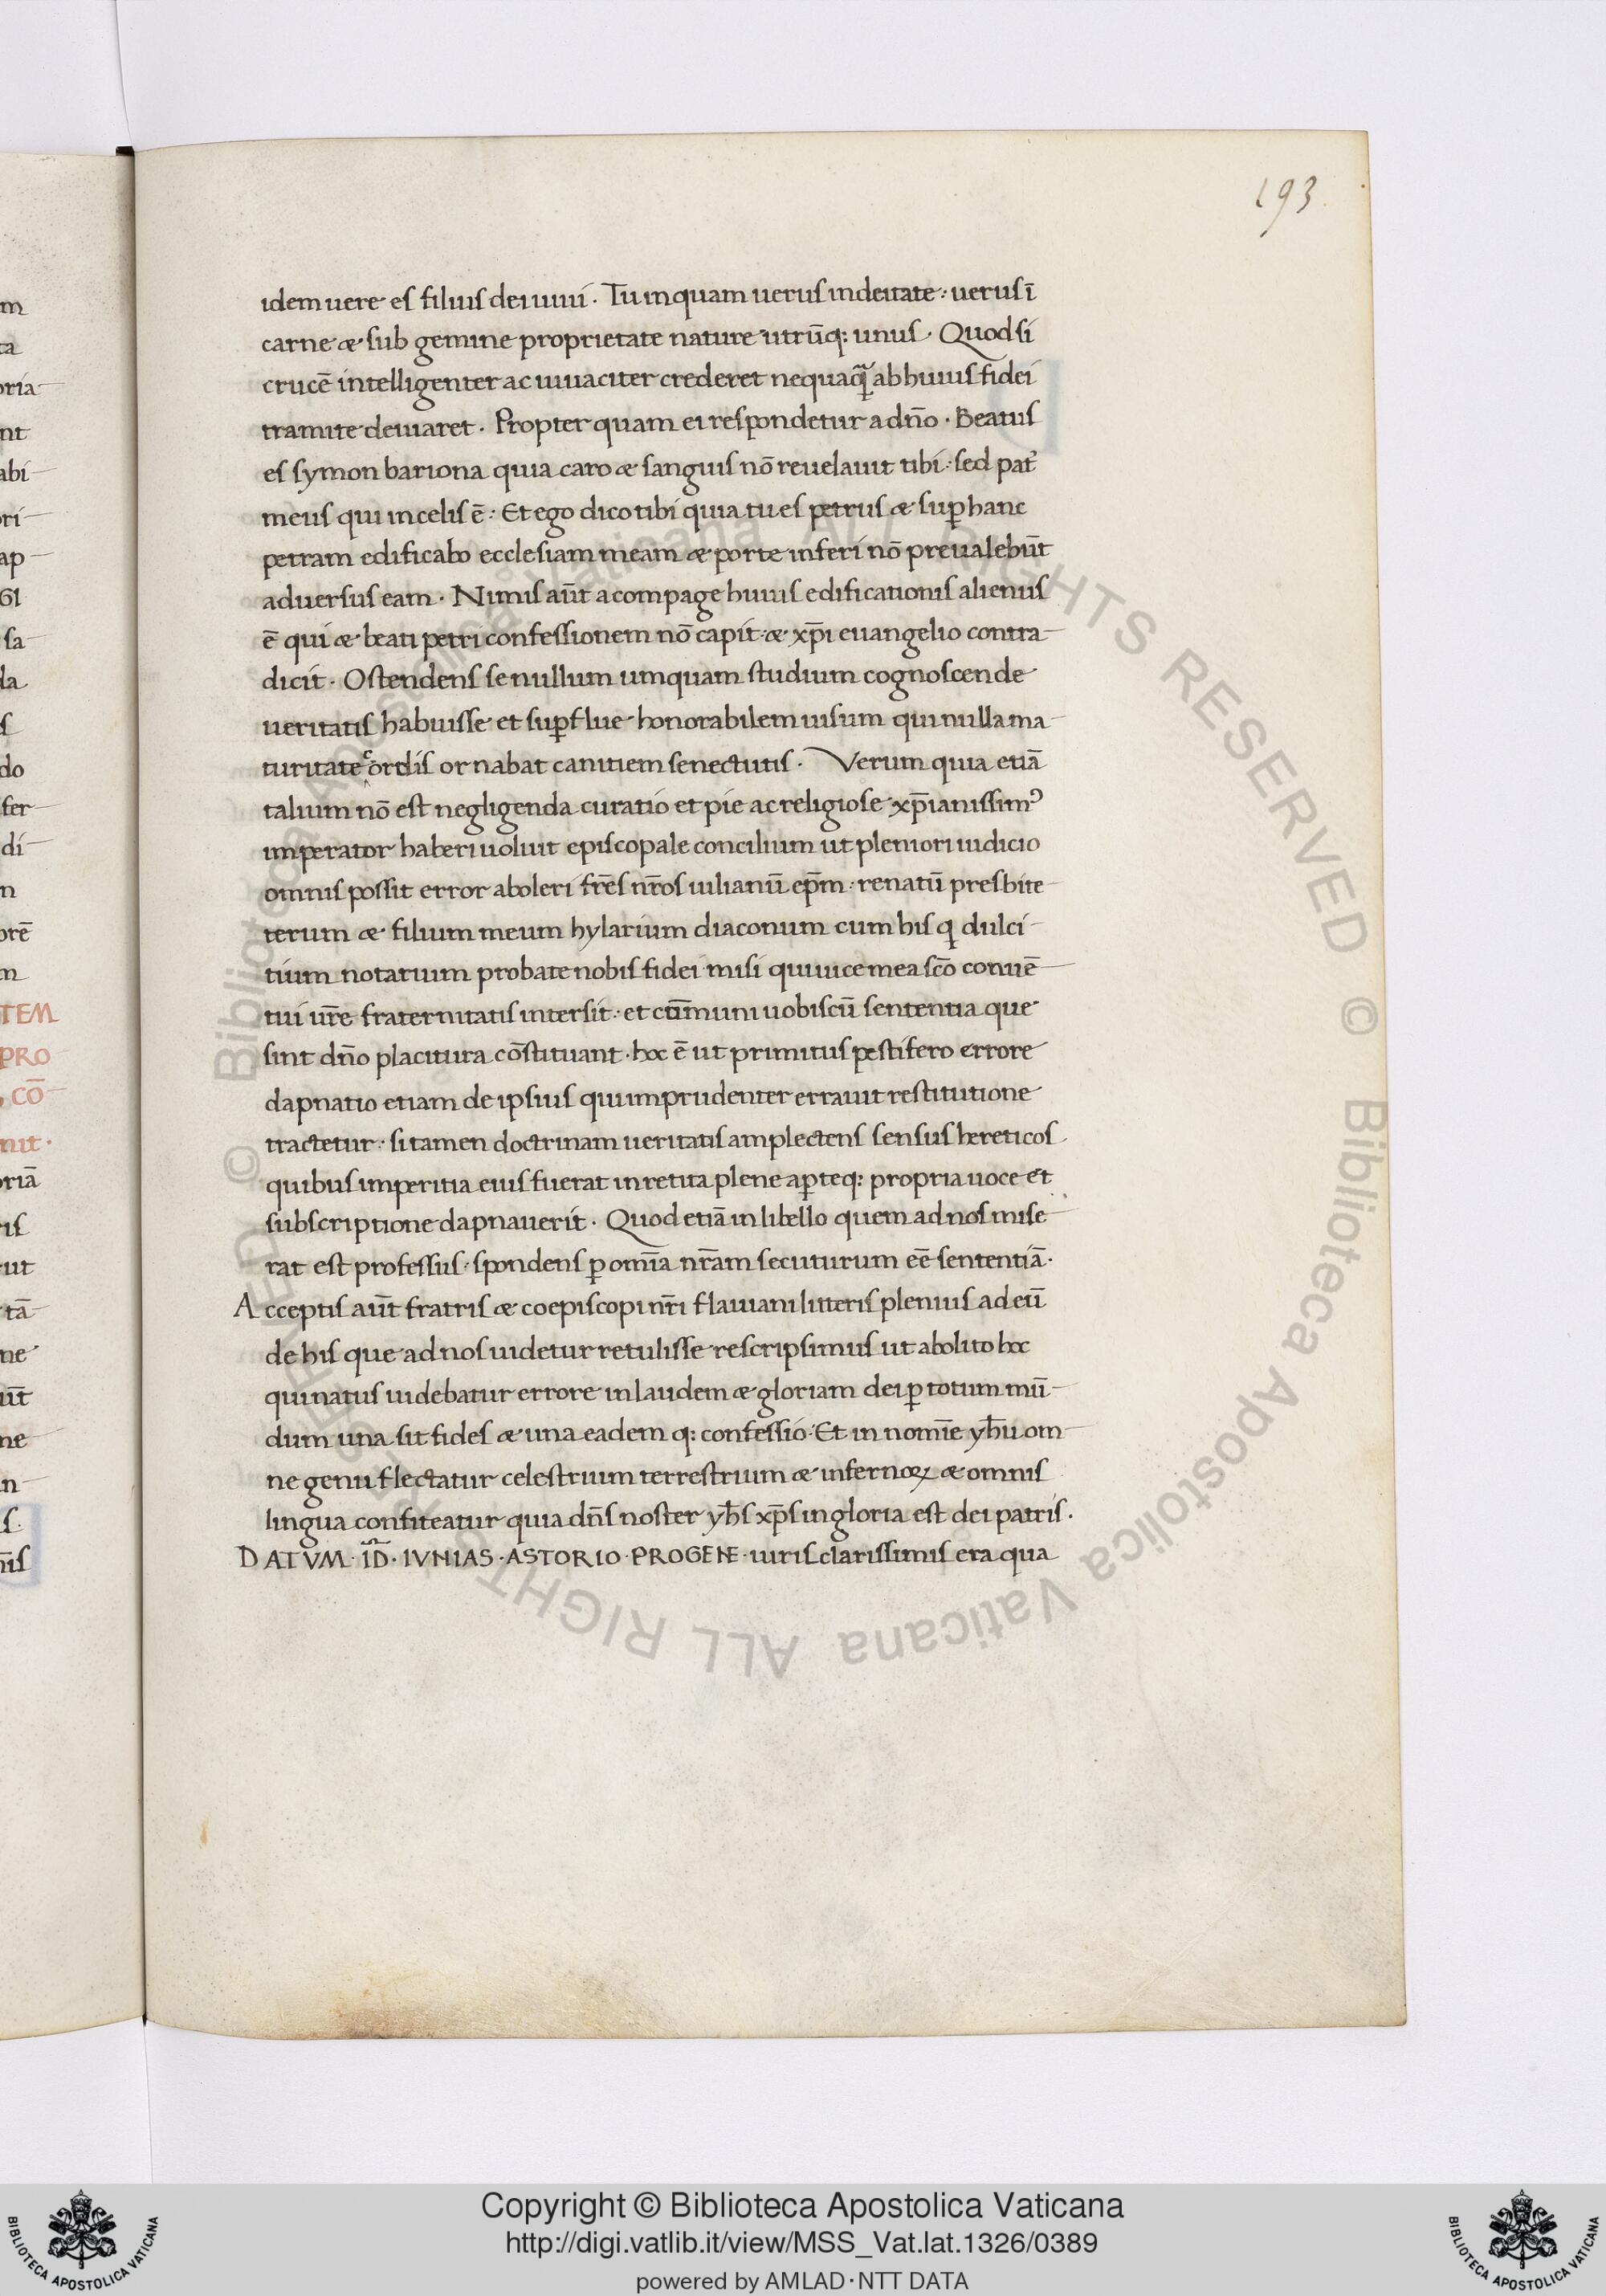 193
idem uere es filius dei uiui. Tu inquam uerus in deitate: uerus ī
carne æ sub gemine proprietate nature utrūq: unus. Quod si
crucē intelligenter ac uiuaciter crederet nequaꝗ̃ ab huius fidei
tramite deuiaret. Propter quam ei respondetur a dño. Beatus
es symon bariona quia caro æ sanguis nō reuelauit tibi: sed pat̃
meus qui in celis ē: Et ego dico tibi quia tu es petrus æ suꝑ hanc
petram edificabo ecclesiam meam æ porte inferi nō preualebūt
aduersus eam. Nimis aūt a compage huius edificationis alienus
ē qui æ beati petri confessionem nō capit: æ xp̄i euangelio contra
dicit. Ostendens se nullum umquam studium cognoscende
ueritatis habuisse et suꝑflue honorabilem uisum qui nulla ma
turitate cordis ornabat canitiem senectutis. Verum quia etiā
talium nō est negligenda curatio et pie ac religiose xp̄ianissimꝰ
imperator haberi uoluit episcopale concilium ut pleniori iudicio
omnis possit error aboleri fr̄es nr̄os iulianū ep̄m: renatū presbite
terum æ filium meum hylarium diaconum cum his q dulci
tium notarium probate nobis fidei misi qui uice mea sc̄o conuē
tui ur̄e fraternitatis intersit: et cūmuni uobiscū sententia que
sint dño placitura cōstituant. hoc ē ut primitus pestifero errore
dapnatio etiam de ipsius qui imprudenter errauit restitutione
tractetur: si tamen doctrinam ueritatis amplectens sensus hereticos
quibus imperitia eius fuerat inretita plene aꝑteq: propria uoce et
subscriptione dapnauerit. Quod etiā in libello quem ad nos mise
rat est professus: spondens ꝑ om̄ia nr̄am secuturum eē sententiā.
Acceptis aūt fratris æ coepiscopi nr̄i flauiani litteris plenius ad eū
de his que ad nos uidetur retulisse rescripsimus ut abolito hoc
qui natus uidebatur errore in laudem æ gloriam dei ꝑ totum mū
dum una sit fides æ una eadem q: confessio. Et in nom̄ie yh̄u om
ne genu flectatur celestrium terrestrium æ infernoꝝ æ omnis
lingua confiteatur quia dn̄s noster yh̄s xp̄s in gloria est dei patris.
DATVM. ID. IVNIAS. ASTORIO. PROGENE. uiris clarissimis era qua
© Biblioteca Apostolica Vaticana ALL RIGHTS RESERVED © Biblioteca Apostolica Vaticana ALL RIGHTS RESERVED
Copyright © Biblioteca Apostolica Vaticana
http://digi.vatlib.it/view/MSS_Vat.lat.1326/0389
powered by AMLAD·NTT DATA
BIBLIOTECA APOSTOLICA VATICANA
BIBLIOTECA APOSTOLICA VATICANA